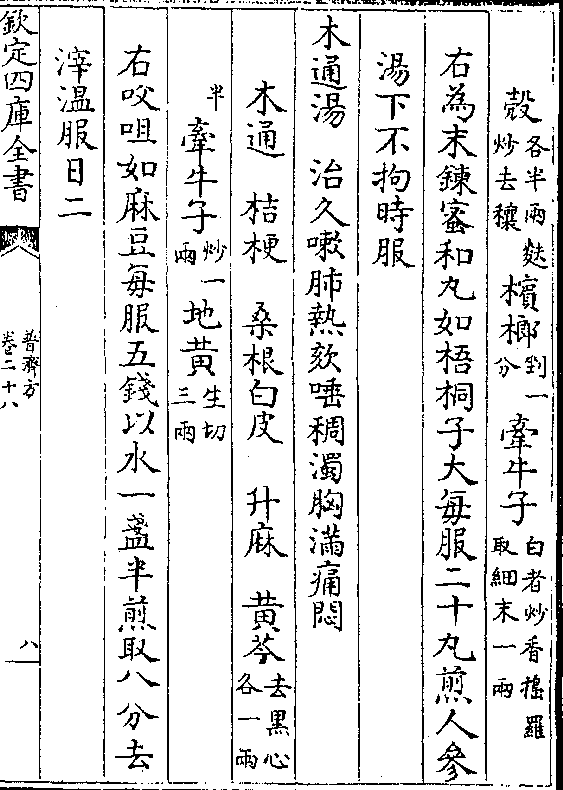 殻各半兩麩炒去穰檳榔剉一分牽牛子白者炒香搗羅取細末一兩
右為末鍊蜜和丸如梧桐子大每服二十丸煎人參
湯下不拘時服
木通湯 治久嗽肺熱欬唾稠濁胸滿痛悶
木通 桔梗 桑根白皮 升麻 黄芩去黒心各一兩
半牽牛子炒一兩地黄生切三兩
右㕮咀如麻豆每服五錢以水一盞半煎取八分去
滓温服日二
欽定四庫全書
普濟方
卷二十八
八